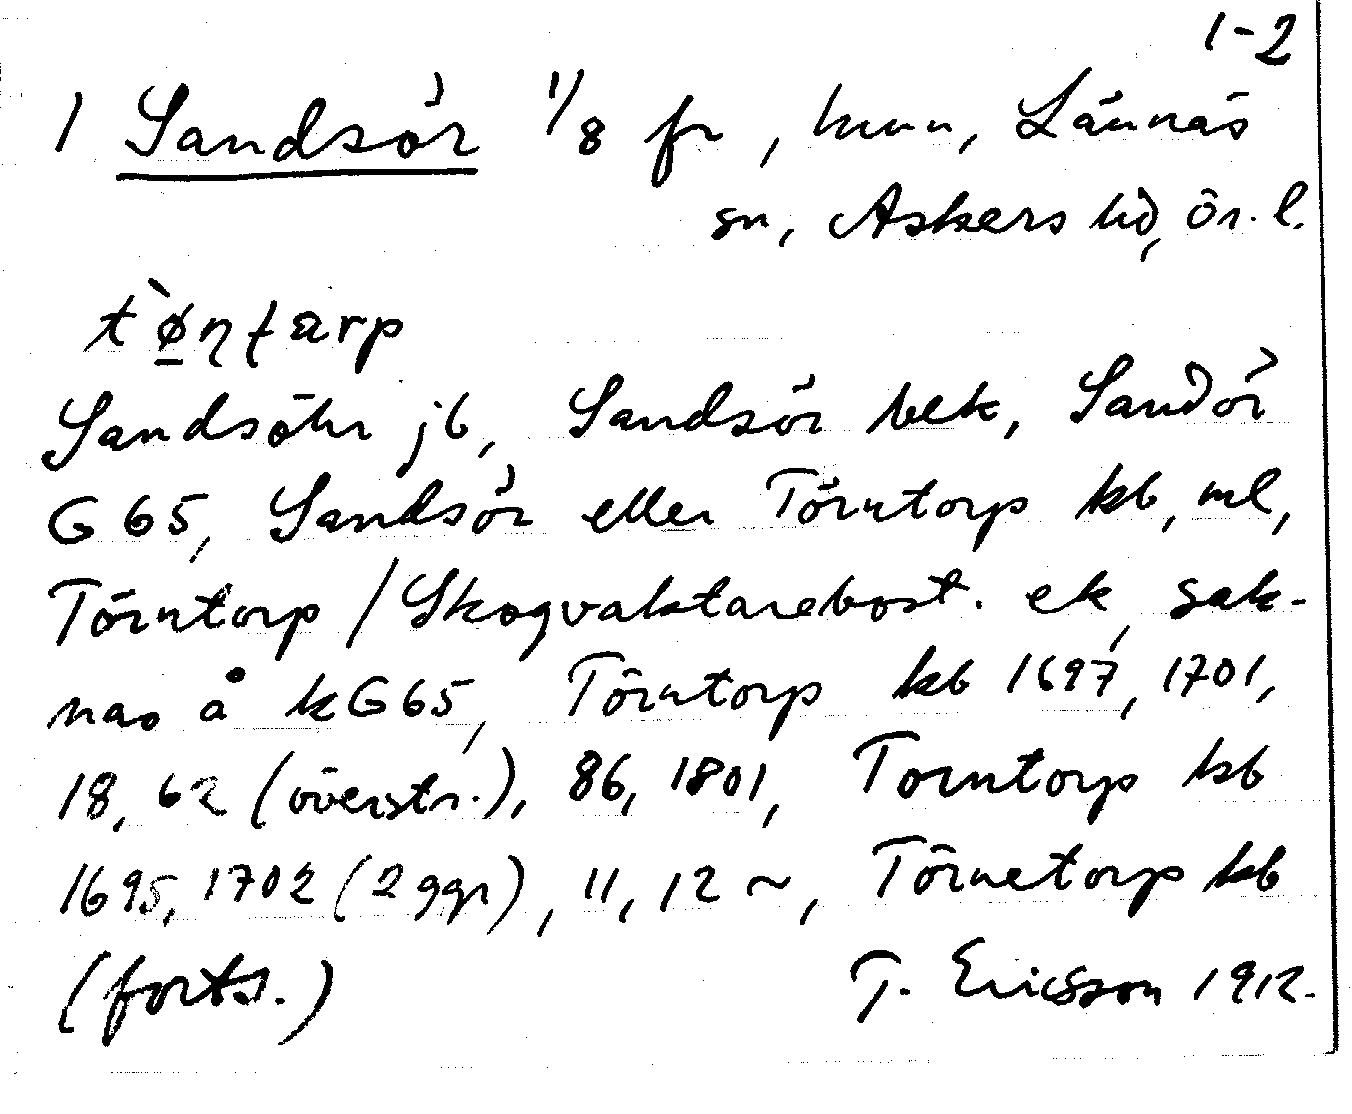 1-2
1 Sandsör 1/8 fr, kunn, Lännäs
sn, Askers hd, ör. l.
Sandsöhr jb, Sandsör bek, Sandör
G 65, Sandsör eller Törntorp kb, ml,
Törntorp / Skogvaktarebost. ek, sak-
nas å kG65, Törntorp kb 1697, 1701,
18, 62 (överstr.), 86, 1801, Torntorp kb
1695, 1702 (2 ggr), 11, 12 ~, Törnetorp kb
(forts.) T. Ericsson 1912.